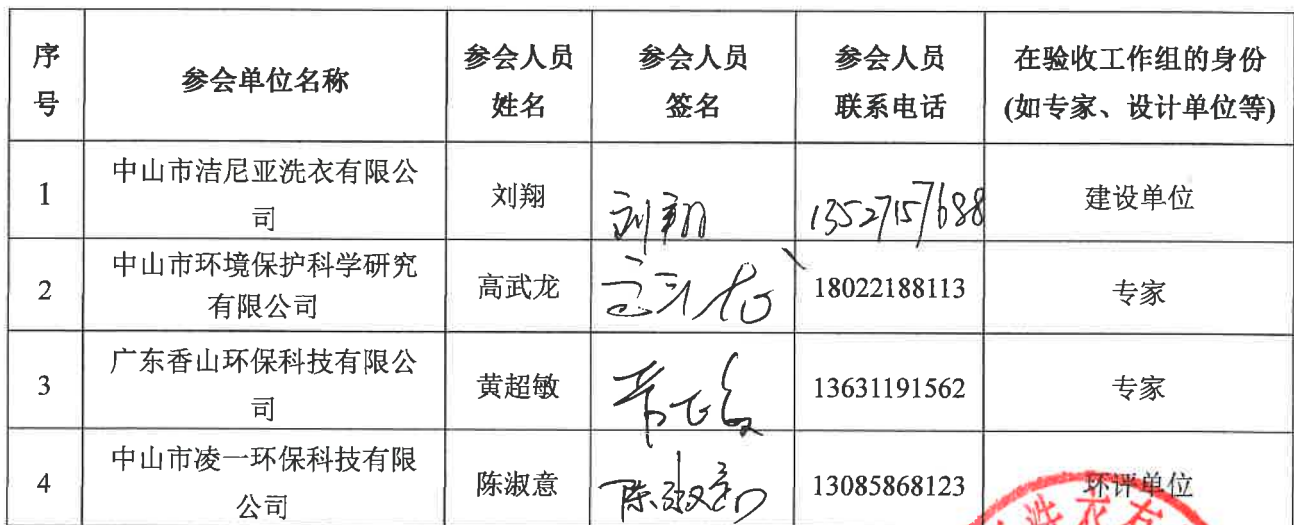 序号
参会单位名称
参会人员姓名
参会人员签名
参会人员联系电话
在验收工作组的身份
(如专家、设计单位等)
1
中山市洁尼亚洗衣有限公
司
刘翔
刘翔
13527157688
建设单位
2
中山市环境保护科学研究
有限公司
高武龙
18022188113
专家
3
广东香山环保科技有限公
司
黄超敏
13631191562
专家
4
中山市凌一环保科技有限
公司
陈淑意
陈淑意
13085868123
环评单位
洗衣有